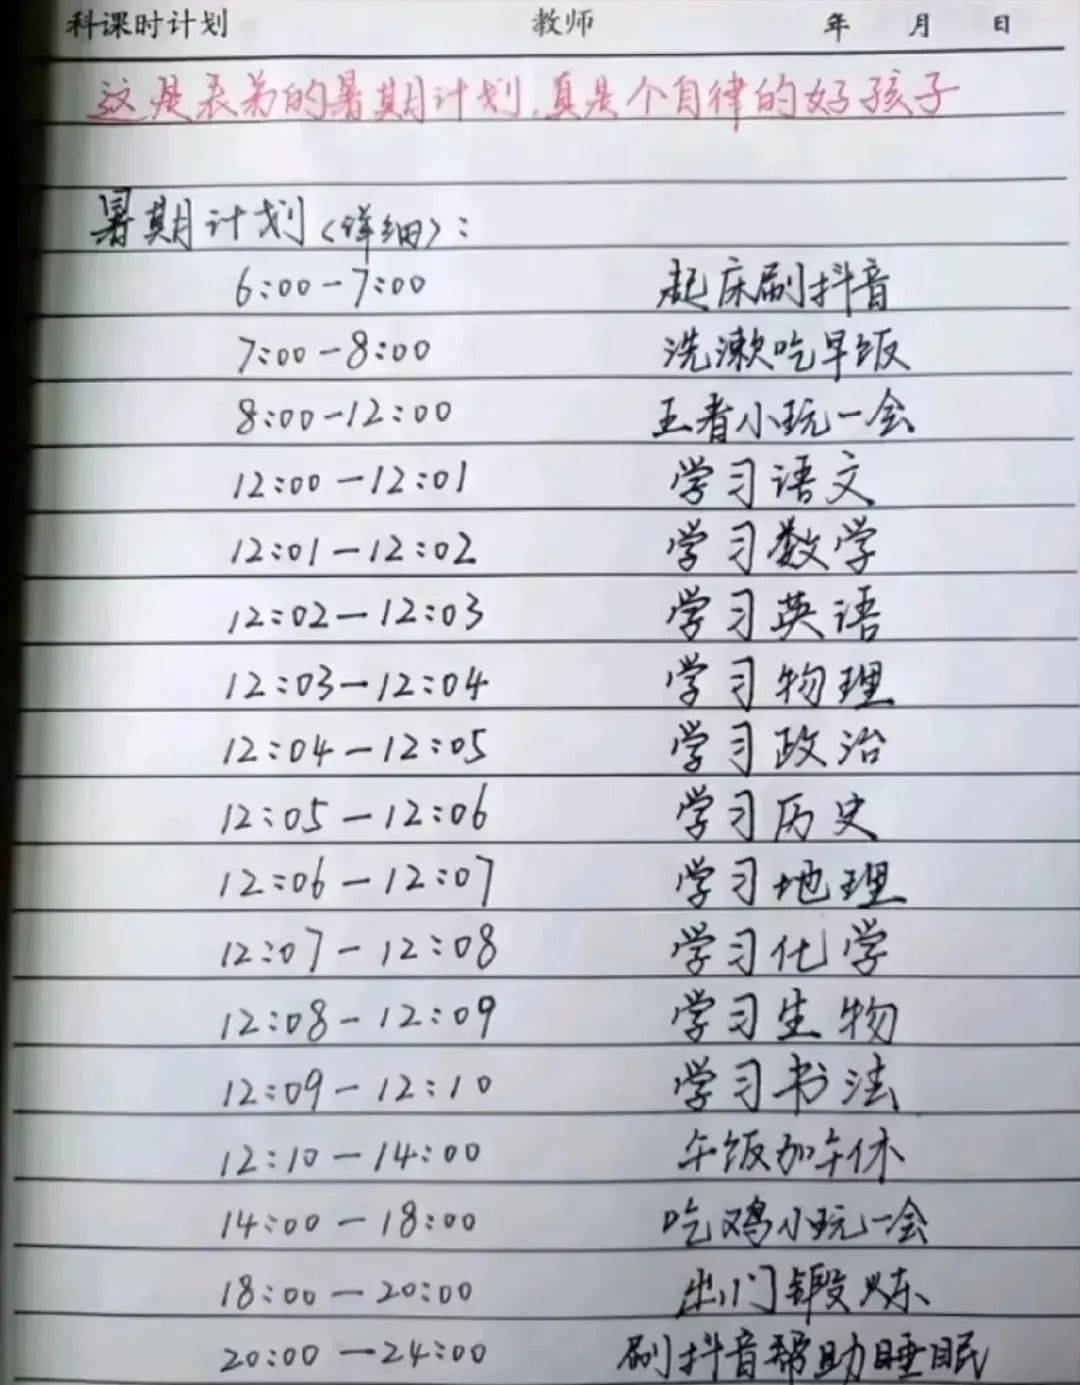 科课时计划 教师 年 月 日
这是表弟的暑期计划,真是个自律的好孩子
暑期计划(详细):
6:00-7:00 起床刷抖音
7:00-8:00 洗漱吃早饭
8:00-12:00 王者小玩一会
12:00-12:01 学习语文
12:01-12:02 学习数学
12:02-12:03 学习英语
12:03-12:04 学习物理
12:04-12:05 学习政治
12:05-12:06 学习历史
12:06-12:07 学习地理
12:07-12:08 学习化学
12:08-12:09 学习生物
12:09-12:10 学习书法
12:10-14:00 午饭加午休
14:00-18:00 吃鸡小玩一会
18:00-20:00 出门锻炼
20:00-24:00 刷抖音帮助睡眠